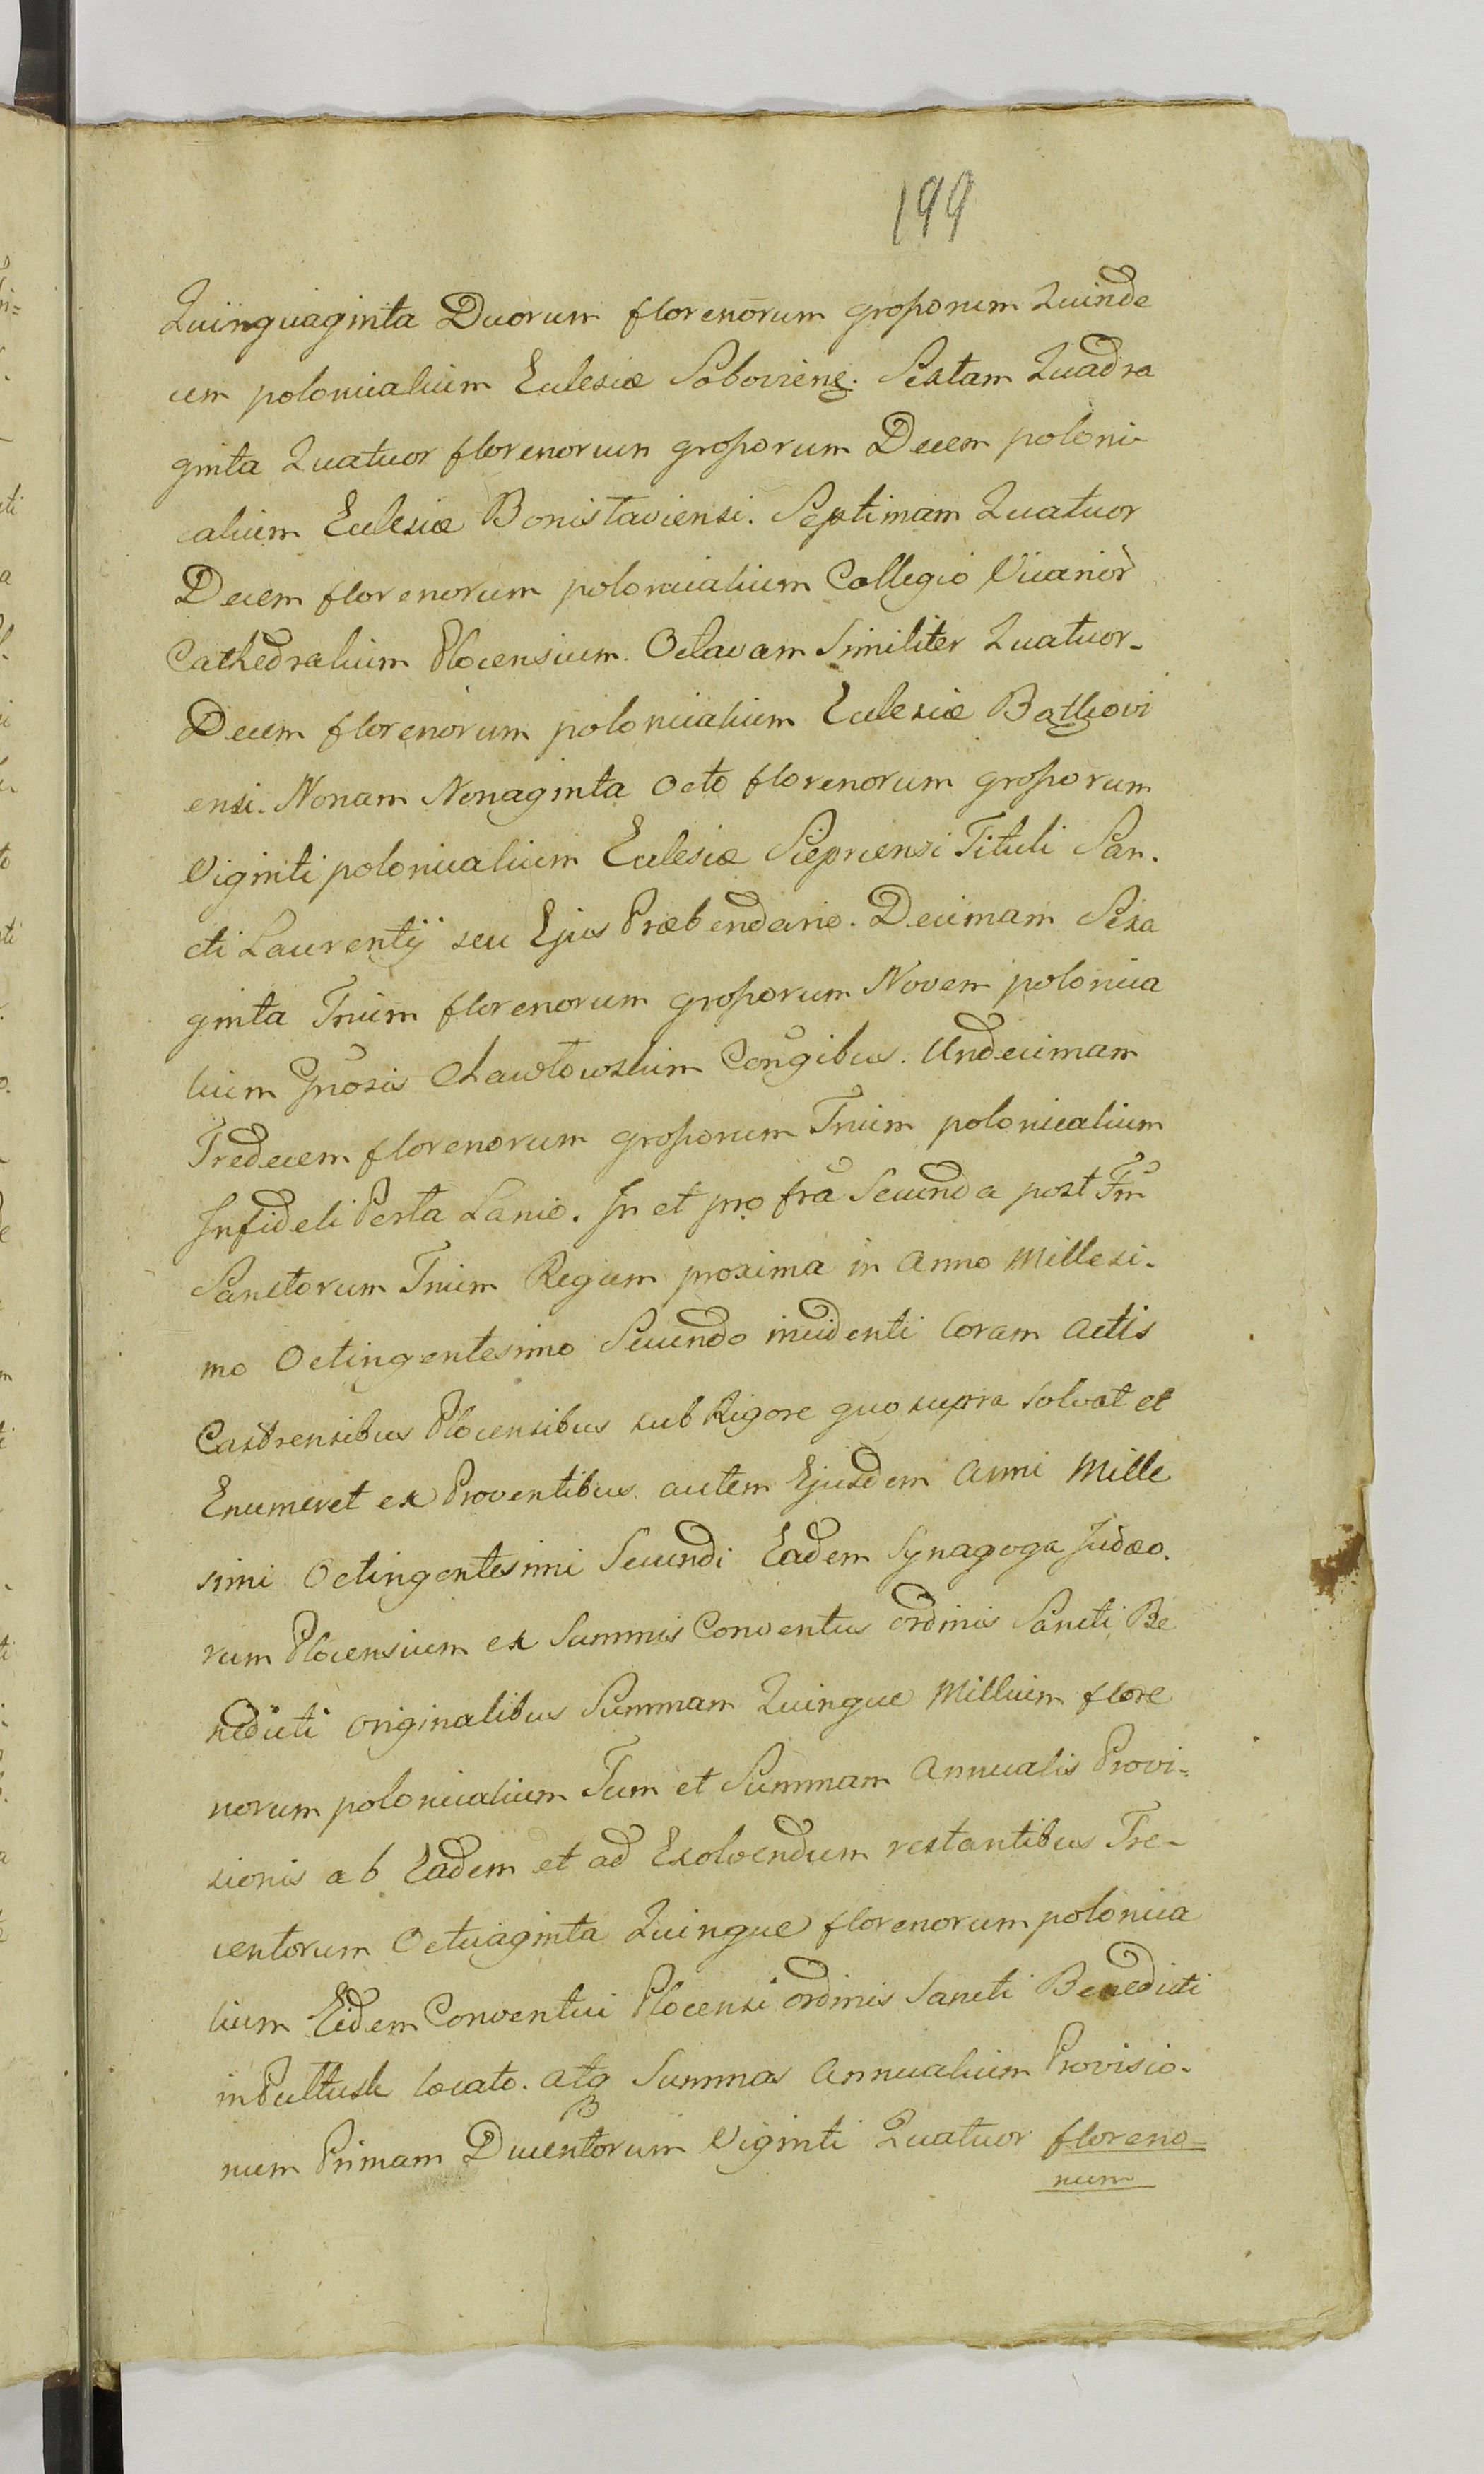 199
Quinquaginta Duorum florenorum grossorum Quinde
cem polonicalium Ecclesiæ Sobovieñ. Sextam Quadra
ginta Quatuor florenorum grossorum Decem poloni-
calium Ecclesiæ Bonislaviensi. Septimam Quatuor
Decem florenorum polonicalium Collegio Vicarior
Cathedralium Plocensium. Octavam Similiter Quatuor-
Decem florenorum polonicalium Ecclesiæ
ensi. Nonam Nonaginta Octo florenorum grossorum
Viginti polonicalium Ecclesiæ Sieprcensi Tituli San-
cti Laurentÿ seu Ejus Præbendario. Decimam Sexa
ginta Trium florenorum grossorum Novem polonica
lium Gnosis Conგibus. Undecimam
Tredecem florenorum grossorum Trium polonicalium
Infideli Perla Lanio. In et pro fra Secunda post Fm
Sanctorum Trium Regum proxima in Anno Millesi-
mo Octingentesimo Secundo incidenti Coram Actis
Castrensibus Plocensibus sub Rigore quo supra solvat et
Enumeret ex Proventibus autem Ejusdem Anni Mille
simi Octingentesimi Secundi Eadem Synagoga Judæo-
rum Plocensium ex Summis Conventus Ordinis Sancti Be
nedicti Originalibus Summam Quinque Millium flore
norum polonicalium Tum et Summam Annualis Provi-
sionis ab Eadem et ad Exolvendum restantibus Tre-
centorum Octuaginta Quinque florenorum polonica
lium Eidem Conventui Plocensi Ordinis Sancti Benedicti
in Pultusk locato. atq Summas Annualium Provisio-
num Primam Ducentorum Viginti Quatuor floreno-
rum